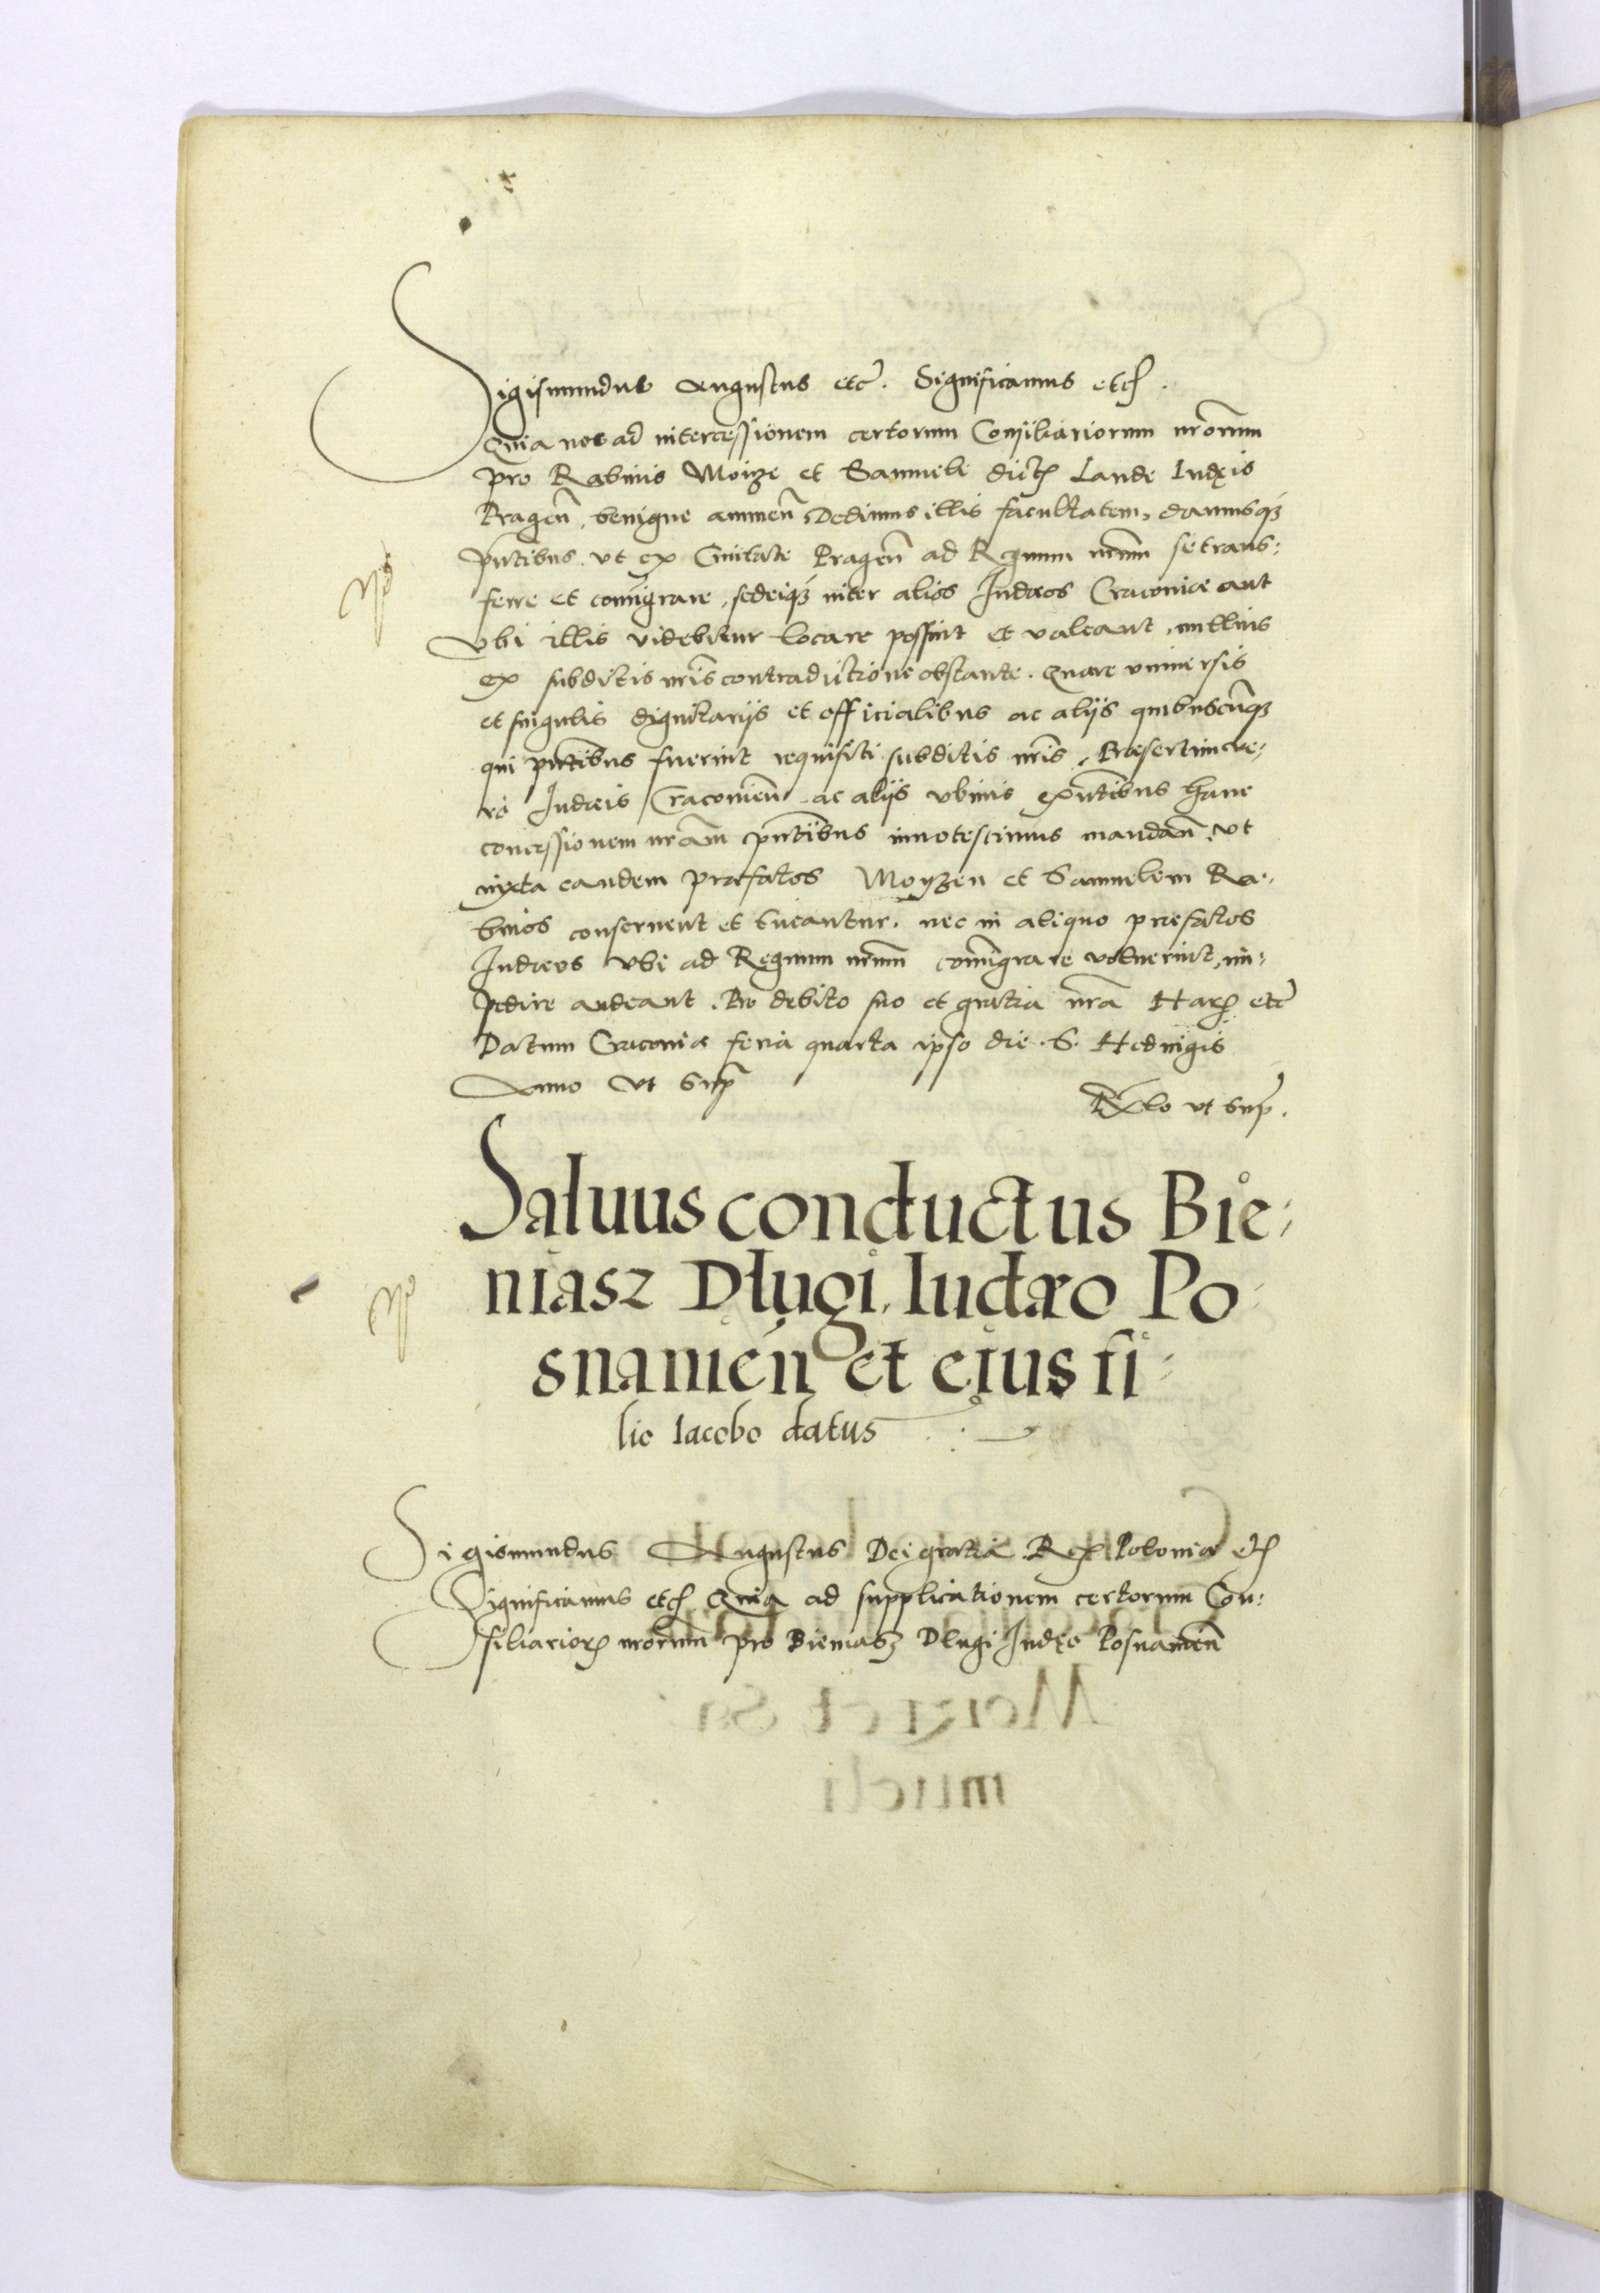 Sigismundus Augustus etc̃. Significamus etc̃.
Quia nos ad intercessionem certorum Consiliariorum nr̃orum
pro Rabinis Moize et Samuele dict̃ Lande Iudęis
Pragen̄, benigne annuen̄ Dedimus illis facultatem, damusq₃
pn̄tibus. vt ex Ciuitate Pragen̄ ad Regnum nr̄um se trans:
ferre et com̄igrare, sedeiq₃ inter alios Iudæos Cracouiæ aut
vbi illis videbitur locare possint et valeant, nullius
ex subditis nr̄is contradictione obstante. Quare vniuersis
et singulis dignitarijs et officialibus ac alijs quibuscūq₃
qui pn̄tibus fuerint requisiti subditis nr̄is, Præsertim ve:
ro Iudæis Cracouien̄ ac alijs vbiuis exn̄tibus hanc
concessionem nr̄am pn̄tibus innotescimus mandan̄, vt
iuxta eandem præfatos Moyzen et Samuelem Ra:
binos conseruent et tueantur, nec in aliquo præfatos
Iudæos vbi ad Regnum nr̄um com̄igrare voluerint, im:
pedire audeant. Pro debito suo et gratia nr̄a Harꝝ etc̃
Datum Cracouiæ feria quarta ipso die S. Heduigis
Anno vt Supͣ
Rel̃o vt Sup̃.
Saluus conductus Bie:
niasz Dlugi, Iudæo Po:
snanien̄ et eius fi:
lio Iacobo datus
Sigismundus Augustus Dei gratia Rex Poloniæ etc̃
Significamus etc̃ Quia ad supplicationem certorum Con:
siliarioꝝ nr̄orum pro Bieniasz Dlugi Iudęo Posnanien̄